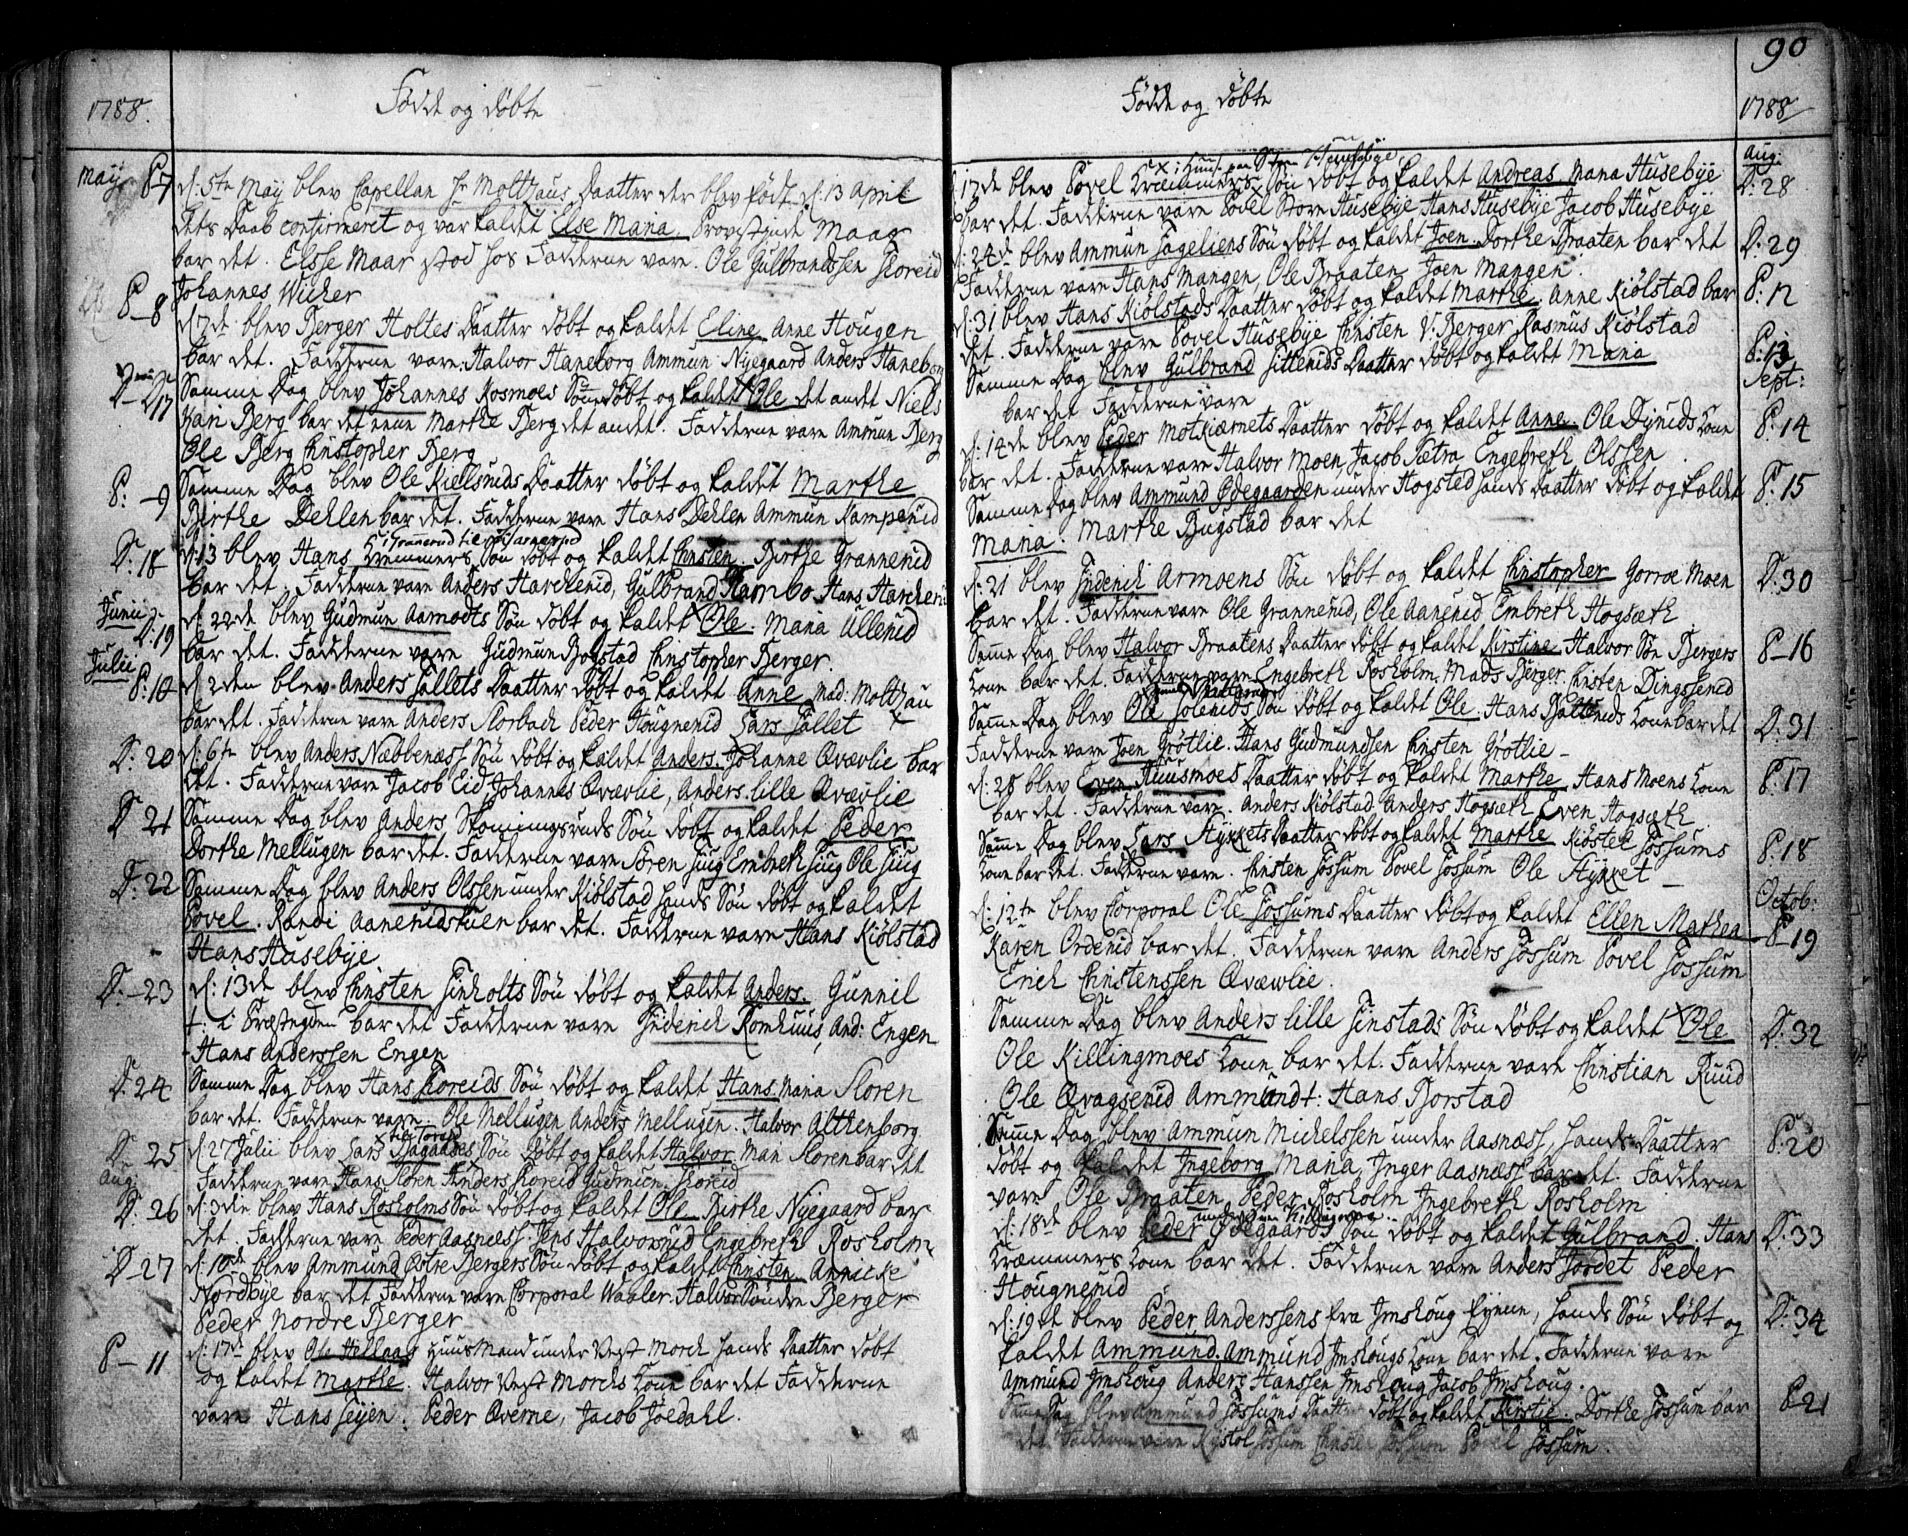 1788.
Födde og döbte
May P-7 d: 5te May blev Capellan Hr Molthaus Daatter der blev födt d: 13 April
dets Daab confirmeret og var kaldet Else Maria, Provstinde Maag
bar det. Elsse Maar stod hos Fadderne vare. Ole Gulbrandssen
Johannes Wicker
P-8 d: 7de blev Berger Holtes Daatter döbt og kaldet Eline Anne Hougen
bar det. Fadderne vare: Halvor Haneborg Ammun Nyegaard Anders Haneborg
D-17 Samme Dag blev Johannes Rosmoes Sön döbt og kaldet Ole det andet Niels
Kari Berg bar det eene Marthe Berg det andet. Fadderne vare Ammun Berg
Ole Berg Christopher Berg
P: -9 Samme Dag blev Ole Kielsruds Daatter döbt og kaldet Marthe
Birthe Dehlen bar det. Fadderne vare Hans Dehlen Ammun
D: 18 d: 13 blev Hans Kremmers Sön döbt og kaldet Christen. Birthe Grannerud
bar det. Fadderne vare Anders Harcherud, Gulbrand Kambo Hans Harcherud
Junii D: 19 d: 22de blev Gudmun Aamodts Sön döbt og kaldet Ole. Maria Ullerud
bar det. Fadderne vare Gudmun Bogstad Christopher Berger.
Julii P: 10 d: 2den blev Anders Fallets Daatter döbt og kaldet Anne Mad: Molthau
bar det. Fadderne vare Anders Storbach Peder Hougnerud Lars Fallet
D: 20 d: 6te blev Anders Næbbenæss Sön döbt og kaldet Anders. Johanne Qvævlie bar
det. Fadderne vare Jacob Eid Johannes Qvævlie, Anders lille Qvævlie
D: 21 Samme Dag blev Anders Skoningsruds Sön döbt og kaldet Peder
Dorthe Mellugen bar det. Fadderne vare Sören Juug Embreth Juug Ole Juug
D: 22 Samme Dag blev Anders Olssen under Kiölstad hands Sön döbt og kaldet
Povel. Randi Aanerudstuen bar det. Fadderne vare Hans Kiölstad
Hans Husebye
D: -23 d: 13de blev Christen Finholts Sön döbt og kaldet Anders. Gunnil
t: i Præstegden bar det Fadderne vare Friderich Romhuus, And: Engen
Hans Anderssen Engen
D: 24 Samme Dag blev Hans Sön döbt og kaldet Hans Maria Floren
bar det. Fadderne vare Ole Mellugen Anders Mellugen. Halvor Althenborg
D 25 d: 27 Julii blev Lars Sön döbt og kaldet Halvor. Mari Floren bar det
Fadderne vare Hans Floren Anders Gudmun
Aug: D: 26 d: 3die blev Hans Rosholms Sön döbt og kaldet Ole Birthe Nyegaard bar
det. Fadderne vare Peder Aasnæss. Jens Halvorsrud Engebreth Rosholm
D-27 d: 10de blev Ammund Östre Bergers Sön döbt og kaldet Christen Annicke
Nordbye bar det Fadderne vare Corporal Waaler. Halvor Söndre Berger
Peder Nordre Berger
P-11 d: 17de blev Ole Huusmand under Vest Morch hands Daatter döbt
og kaldet Marthe. Halvor Vest Morchs Kone bar det Fadderne
vare Hans Peder Qverne, Jacob
90
Födde og döbte
1788
Aug:
d: 17de blev Povel Kræmmers Sön döbt og kaldet Andreas Maria Husebye D: 28
bar det. Fadderne vare Povel Store Husebye Hans Husebye Jacob Husebye
d: 24de blev Ammun Sön döbt og kaldet Joen. Dorthe Braaten bar det D: 29
Fadderne vare Hans Mangen, Ole Braaten Joen Mangen.
d: 31 blev Hans Kiölstads Daatter döbt og kaldet Marthe. Anne Kiölstad bar P: 12
det. Fadderne vare Povel Husebye Christen V: Berger Rasmus Kiölstad
Samme Dag blev Gulbrand Sitteruds Daatter döbt og kaldet Maria P: 13
bar det Fadderne vare
Sept:
d: 14de blev Peder Motkiærnets Daatter döbt og kaldet Anne. Ole Dyruds Kone P: 14
bar det. Fadderne vare Halvor Moen, Jacob Sætra Engebreth Olssen
Samme Dag blev Ammund Ödegaarden under Hogsted hands Daatter döbt og kaldet P: 15
Maria. Marthe Bugstad bar det
d: 21 blev Friderich Armoens Sön döbt og kaldet Christopher Gorroe Moen D: 30
bar det. Fadderne vare Ole Grannerud, Ole Aanerud Embreth Hogsæth
Samme Dag blev Halvor Braatens Daatter döbt og kaldet Kirstine Halvor Sön Bergers P-16
Kone bar det. Fadderne vare Engebreth Rosholm. Mads Berger. Christen Dingsrud
Samme Dag blev Ole Sön döbt og kaldet Ole. Hans Kone bar det D: 31
Fadderne vare Joen Grötlie. Hans Gudmundsen Christen Grötlie
d: 28 blev Even Huusmoes Daatter döbt og kaldet Marthe. Hans Moens Kone P: 17
bar det. Fadderne vare. Anders Kiölstad Anders Hogsæth Even Hogsæth
Samme Dag blev Lars Stykkets Daatter döbt og kaldet Marthe Fossums P: 18
Kone bar det. Fadderne vare. Christen Fossum Povel Fossum Ole Stykket
Octob:
d: 12te blev Corporal Ole Fossums Daatter döbt og kaldet Ellen Mathea P-19
Karen Orderud bar det. Fadderne vare Anders Fossum Povel Fossum
Erich Christenssen Qvævlie.
Samme Dag blev Anders lille Finstads Sön döbt og kaldet Ole D: 32
Ole Killingmoes Kone bar det. Fadderne vare Christian Ruud
Ole Ammund t: Hans Bjorstad
Samme Dag blev Ammun Michelssen under Aasnæss, hands Daatter P: 20
döbt og kaldet Ingeborg Maria, Inger Aasnæss bar det. Fadderne
vare Ole Braaten, Peder Rosholm Ingebreth Rosholm
d: 18de blev Peder Ödegaards Sön döbt og kaldet Gulbrand. Hans D: 33
Kræmmers Kone bar det. Fadderne vare Anders Jordet Peder
Hougnerud
d: 19de blev Peder Anderssens fra Imshoug Eyene, hands Sön döbt og D: 34
kaldet Ammund, Ammund Imshougs Kone bar det. Fadderne vare
Ammund Imshoug Anders Hanssen Imshoug Jacob Imshoug.
Samme Dag blev Ammund Fossums Daatter döbt og kaldet Kirstie. Dorthe Fossum bar P 21
det. Fadderne vare Fossum Christen Fossum Povel Fossum.